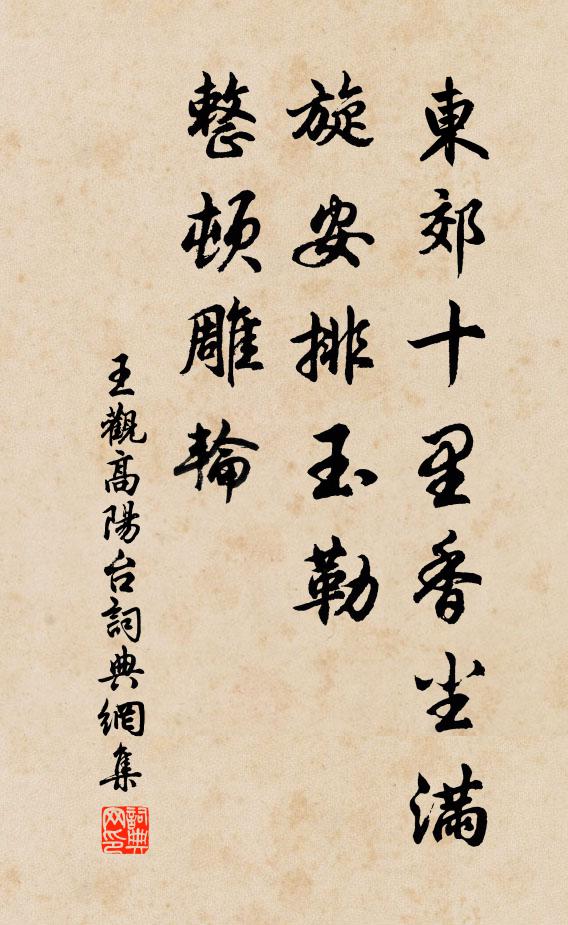 東郊十里香尘滿
旋安排玉勒
整頓雕輪
王觀高陽台詞典網集
詞典網印